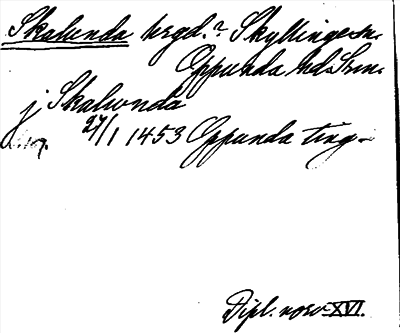 Skalunda bygd.? Skyllinge sn.
Oppunda hd. Srm.
j Skalunda
27/1 1453 Oppunda ting
Dipl. norv. XVI.